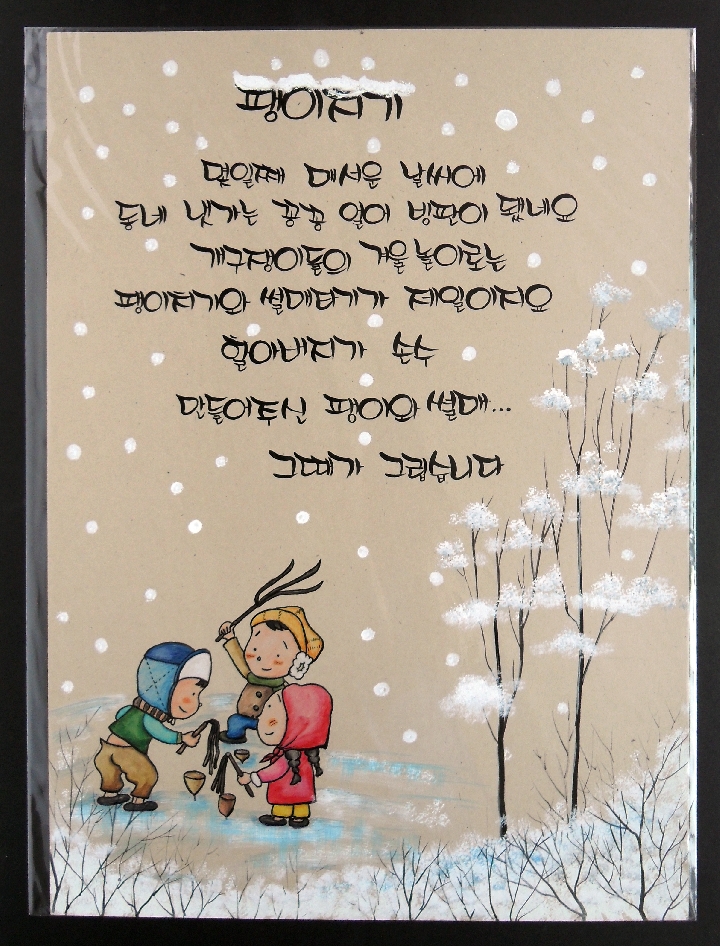 팽이치기
몇일째 매서운 날씨에
동네 냇가는 꽁꽁 얼어 빙판이 됐네요
개구쟁이들의 겨울놀이로는
팽이치기와 썰매타기가 제일이지요
할아버지가 손수
만들어주신 팽이와 썰매...
그때가 그립습니다